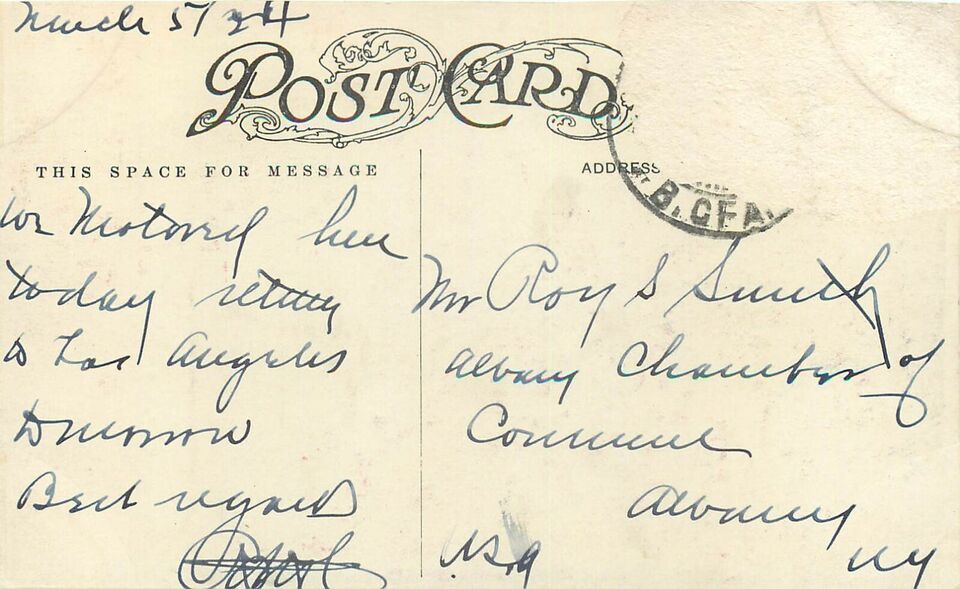 March 5/24
POST CARD
THIS SPACE FOR MESSAGE
ADDRESS
We Motored here
today return
to Los Angeles
tomorrow
Best regards
Mr Roy S Smith
Albany Chamber of
Commerce
Albany
NY
USA